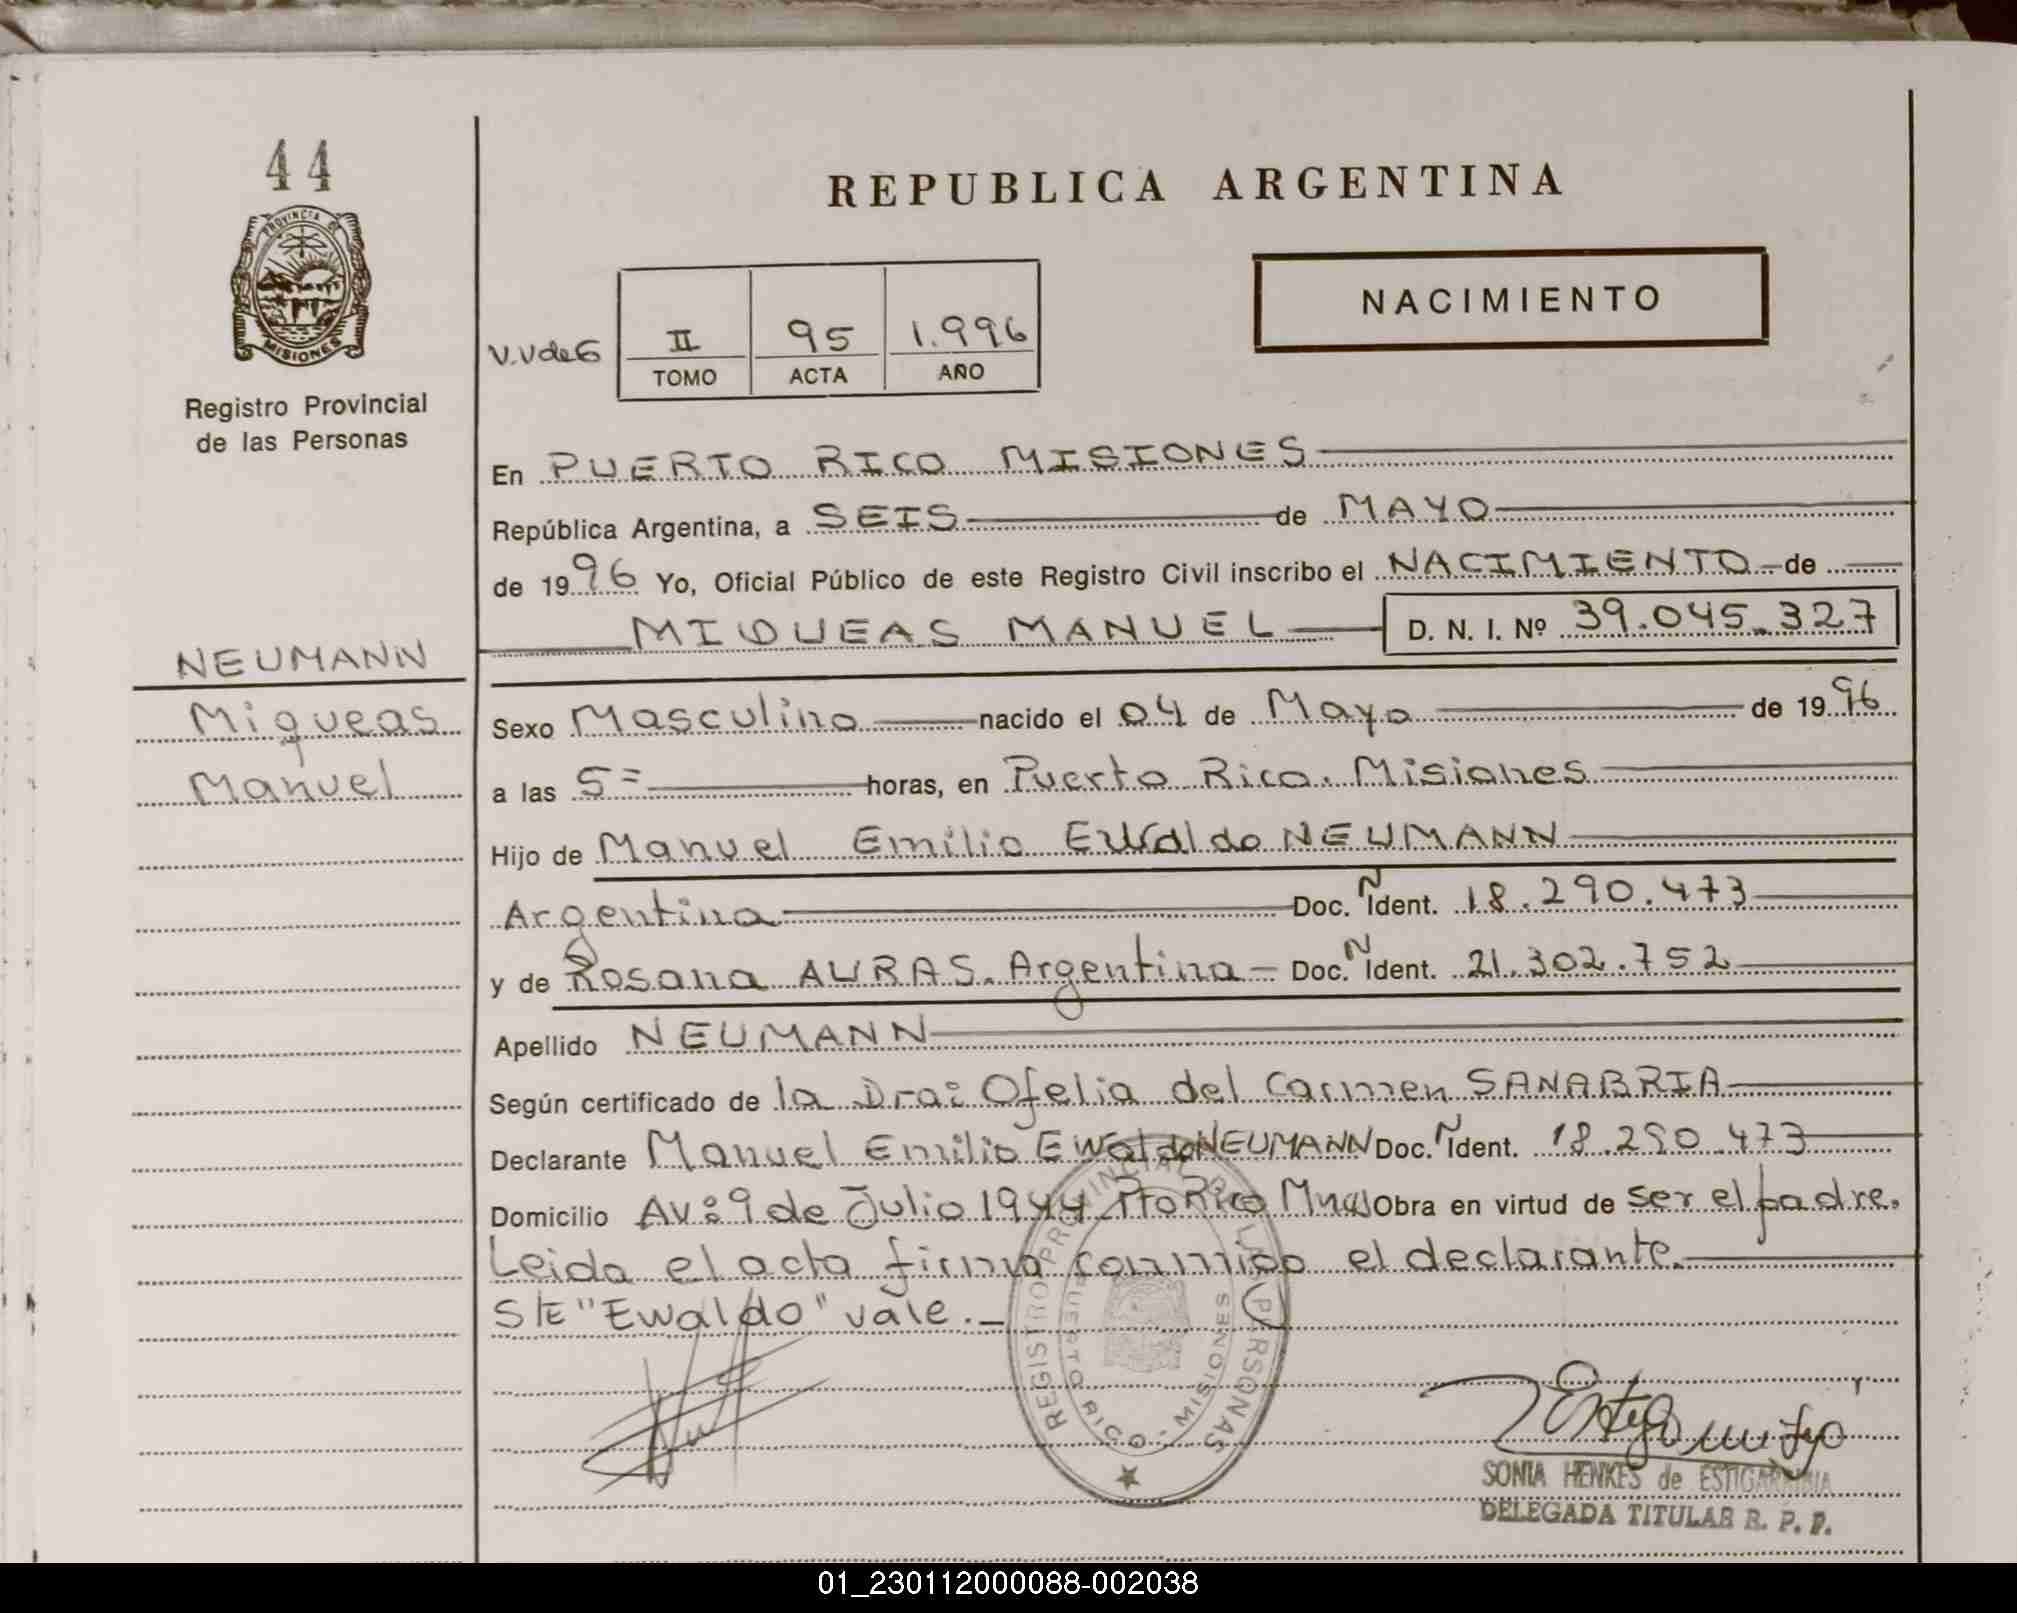 44
PROVINCIA DE
MISIONES
Registro Provincial
de las Personas
REPUBLICA ARGENTINA
NACIMIENTO
V.V de G
II 95 1.996
TOMO ACTA AÑO
En PUERTO RICO MISIONES
República Argentina, a SEIS de MAYO
de 1996 Yo, Oficial Público de este Registro Civil inscribo el NACIMIENTO de
MIQUEAS MANUEL D. N. I. Nº 39.045.327
NEUMANN
Miqueas
Manuel
Sexo Masculino nacido el 04 de Mayo de 1996
a las 5= horas, en Puerto Rico. Misiones
Hijo de Manuel Emilio Ewaldo NEUMANN
Argentina Doc. N Ident. 18.290.473
y de Rosana AURAS. Argentina Doc. N Ident. 21.302.752
Apellido NEUMANN
Según certificado de la Dra: Ofelia del Carmen SANABRIA
Declarante Manuel Emilio Ewaldo NEUMANN Doc. N Ident. 18.290.473
Domicilio Av: 9 de Julio 1944 Pto Rico Mnes Obra en virtud de ser el padre.
Leida el acta firma conmigo el declarante.
S/E "Ewaldo" vale.
REGISTRO PROVINCIAL DE LAS PERSONAS
PUERTO RICO - MISIONES
SONIA HENKES de ESTIGARRIBIA
DELEGADA TITULAR R. P. P.
01_230112000088-002038